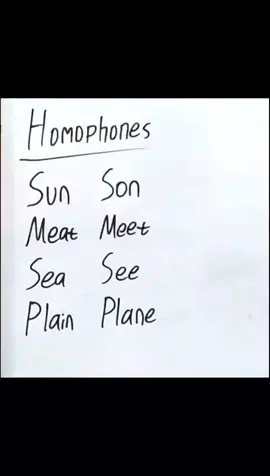 Homophones
Sun Son
Meat Meet
Sea See
Plain Plane